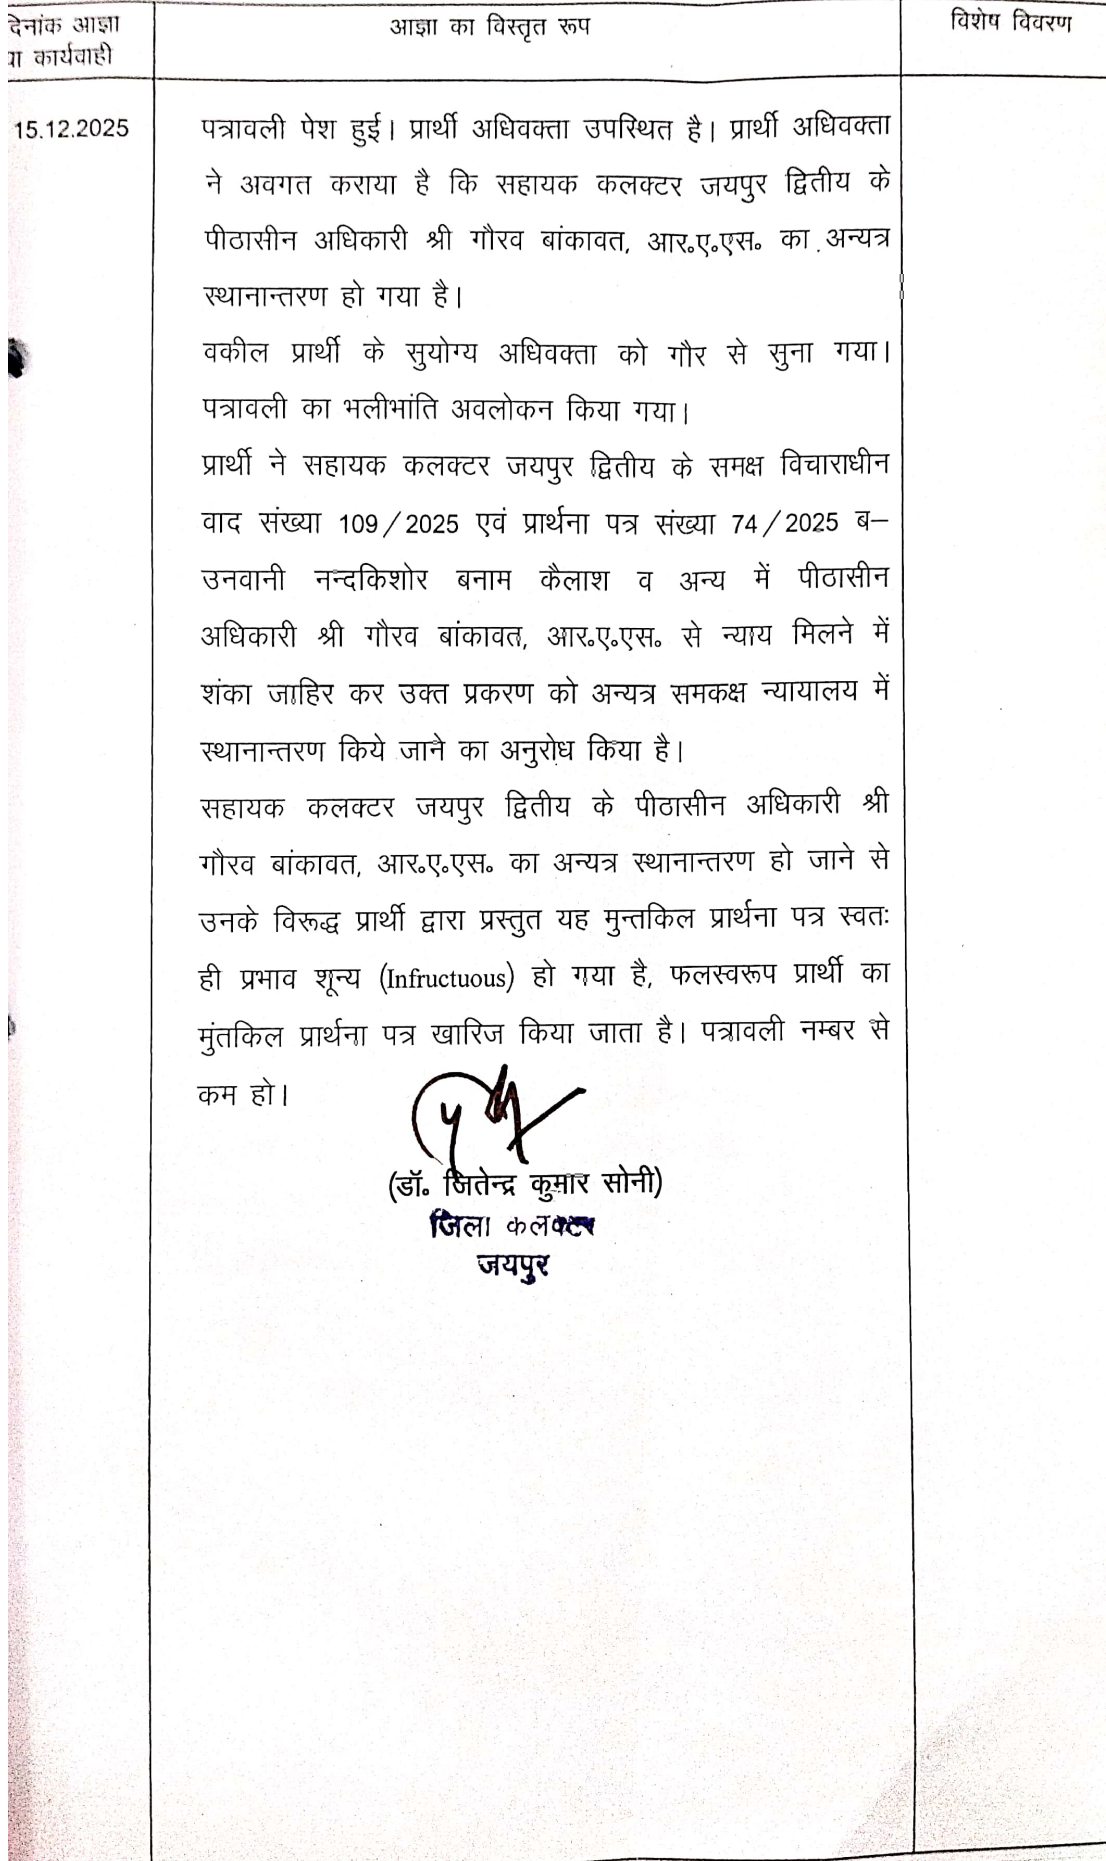 दिनांक आज्ञा
या कार्यवाही
आज्ञा का विस्तृत रूप
विशेष विवरण
15.12.2025
पत्रावली पेश हुई। प्रार्थी अधिवक्ता उपस्थित है। प्रार्थी अधिवक्ता
ने अवगत कराया है कि सहायक कलक्टर जयपुर द्वितीय के
पीठासीन अधिकारी श्री गौरव बांकावत, आर.ए.एस. का अन्यत्र
स्थानान्तरण हो गया है।
वकील प्रार्थी के सुयोग्य अधिवक्ता को गौर से सुना गया।
पत्रावली का भलीभांति अवलोकन किया गया।
प्रार्थी ने सहायक कलक्टर जयपुर द्वितीय के समक्ष विचाराधीन
वाद संख्या 109/2025 एवं प्रार्थना पत्र संख्या 74/2025 ब–
उनवानी नन्दकिशोर बनाम कैलाश व अन्य में पीठासीन
अधिकारी श्री गौरव बांकावत, आर.ए.एस. से न्याय मिलने में
शंका जाहिर कर उक्त प्रकरण को अन्यत्र समकक्ष न्यायालय में
स्थानान्तरण किये जाने का अनुरोध किया है।
सहायक कलक्टर जयपुर द्वितीय के पीठासीन अधिकारी श्री
गौरव बांकावत, आर.ए.एस. का अन्यत्र स्थानान्तरण हो जाने से
उनके विरूद्ध प्रार्थी द्वारा प्रस्तुत यह मुन्तकिल प्रार्थना पत्र स्वतः
ही प्रभाव शून्य (Infructuous) हो गया है, फलस्वरूप प्रार्थी का
मुंतकिल प्रार्थना पत्र खारिज किया जाता है। पत्रावली नम्बर से
कम हो।
(डॉ. जितेन्द्र कुमार सोनी)
जिला कलक्टर
जयपुर